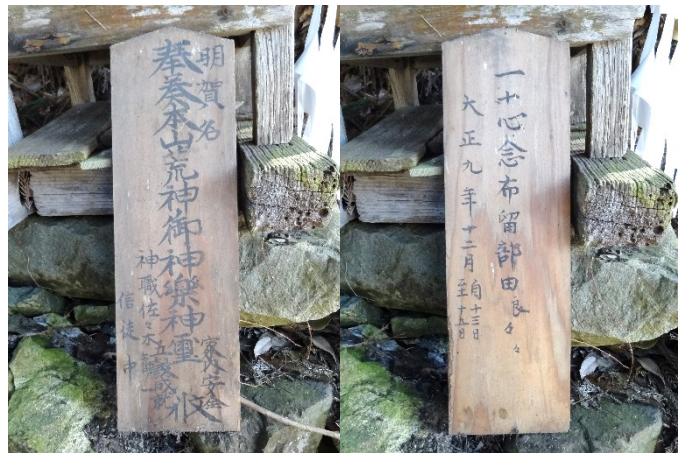 明賀名
奉奏本山荒神御神楽神璽
家内安全
五穀成就
攸
神職佐々木
信徒中
一十心念布留部由良々々
大正九年十二月自十三日
至十五日